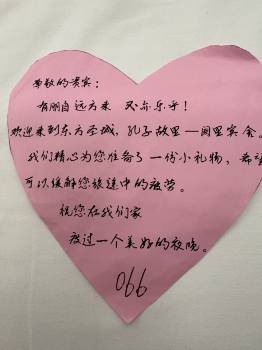 尊敬的贵宾：
有朋自远方来 不亦乐乎！
欢迎来到东方圣城，孔子故里—阙里宾舍。
我们精心为您准备了一份小礼物，希望
可以缓解您旅途中的疲劳。
祝您在我们家
度过一个美好的夜晚。
066